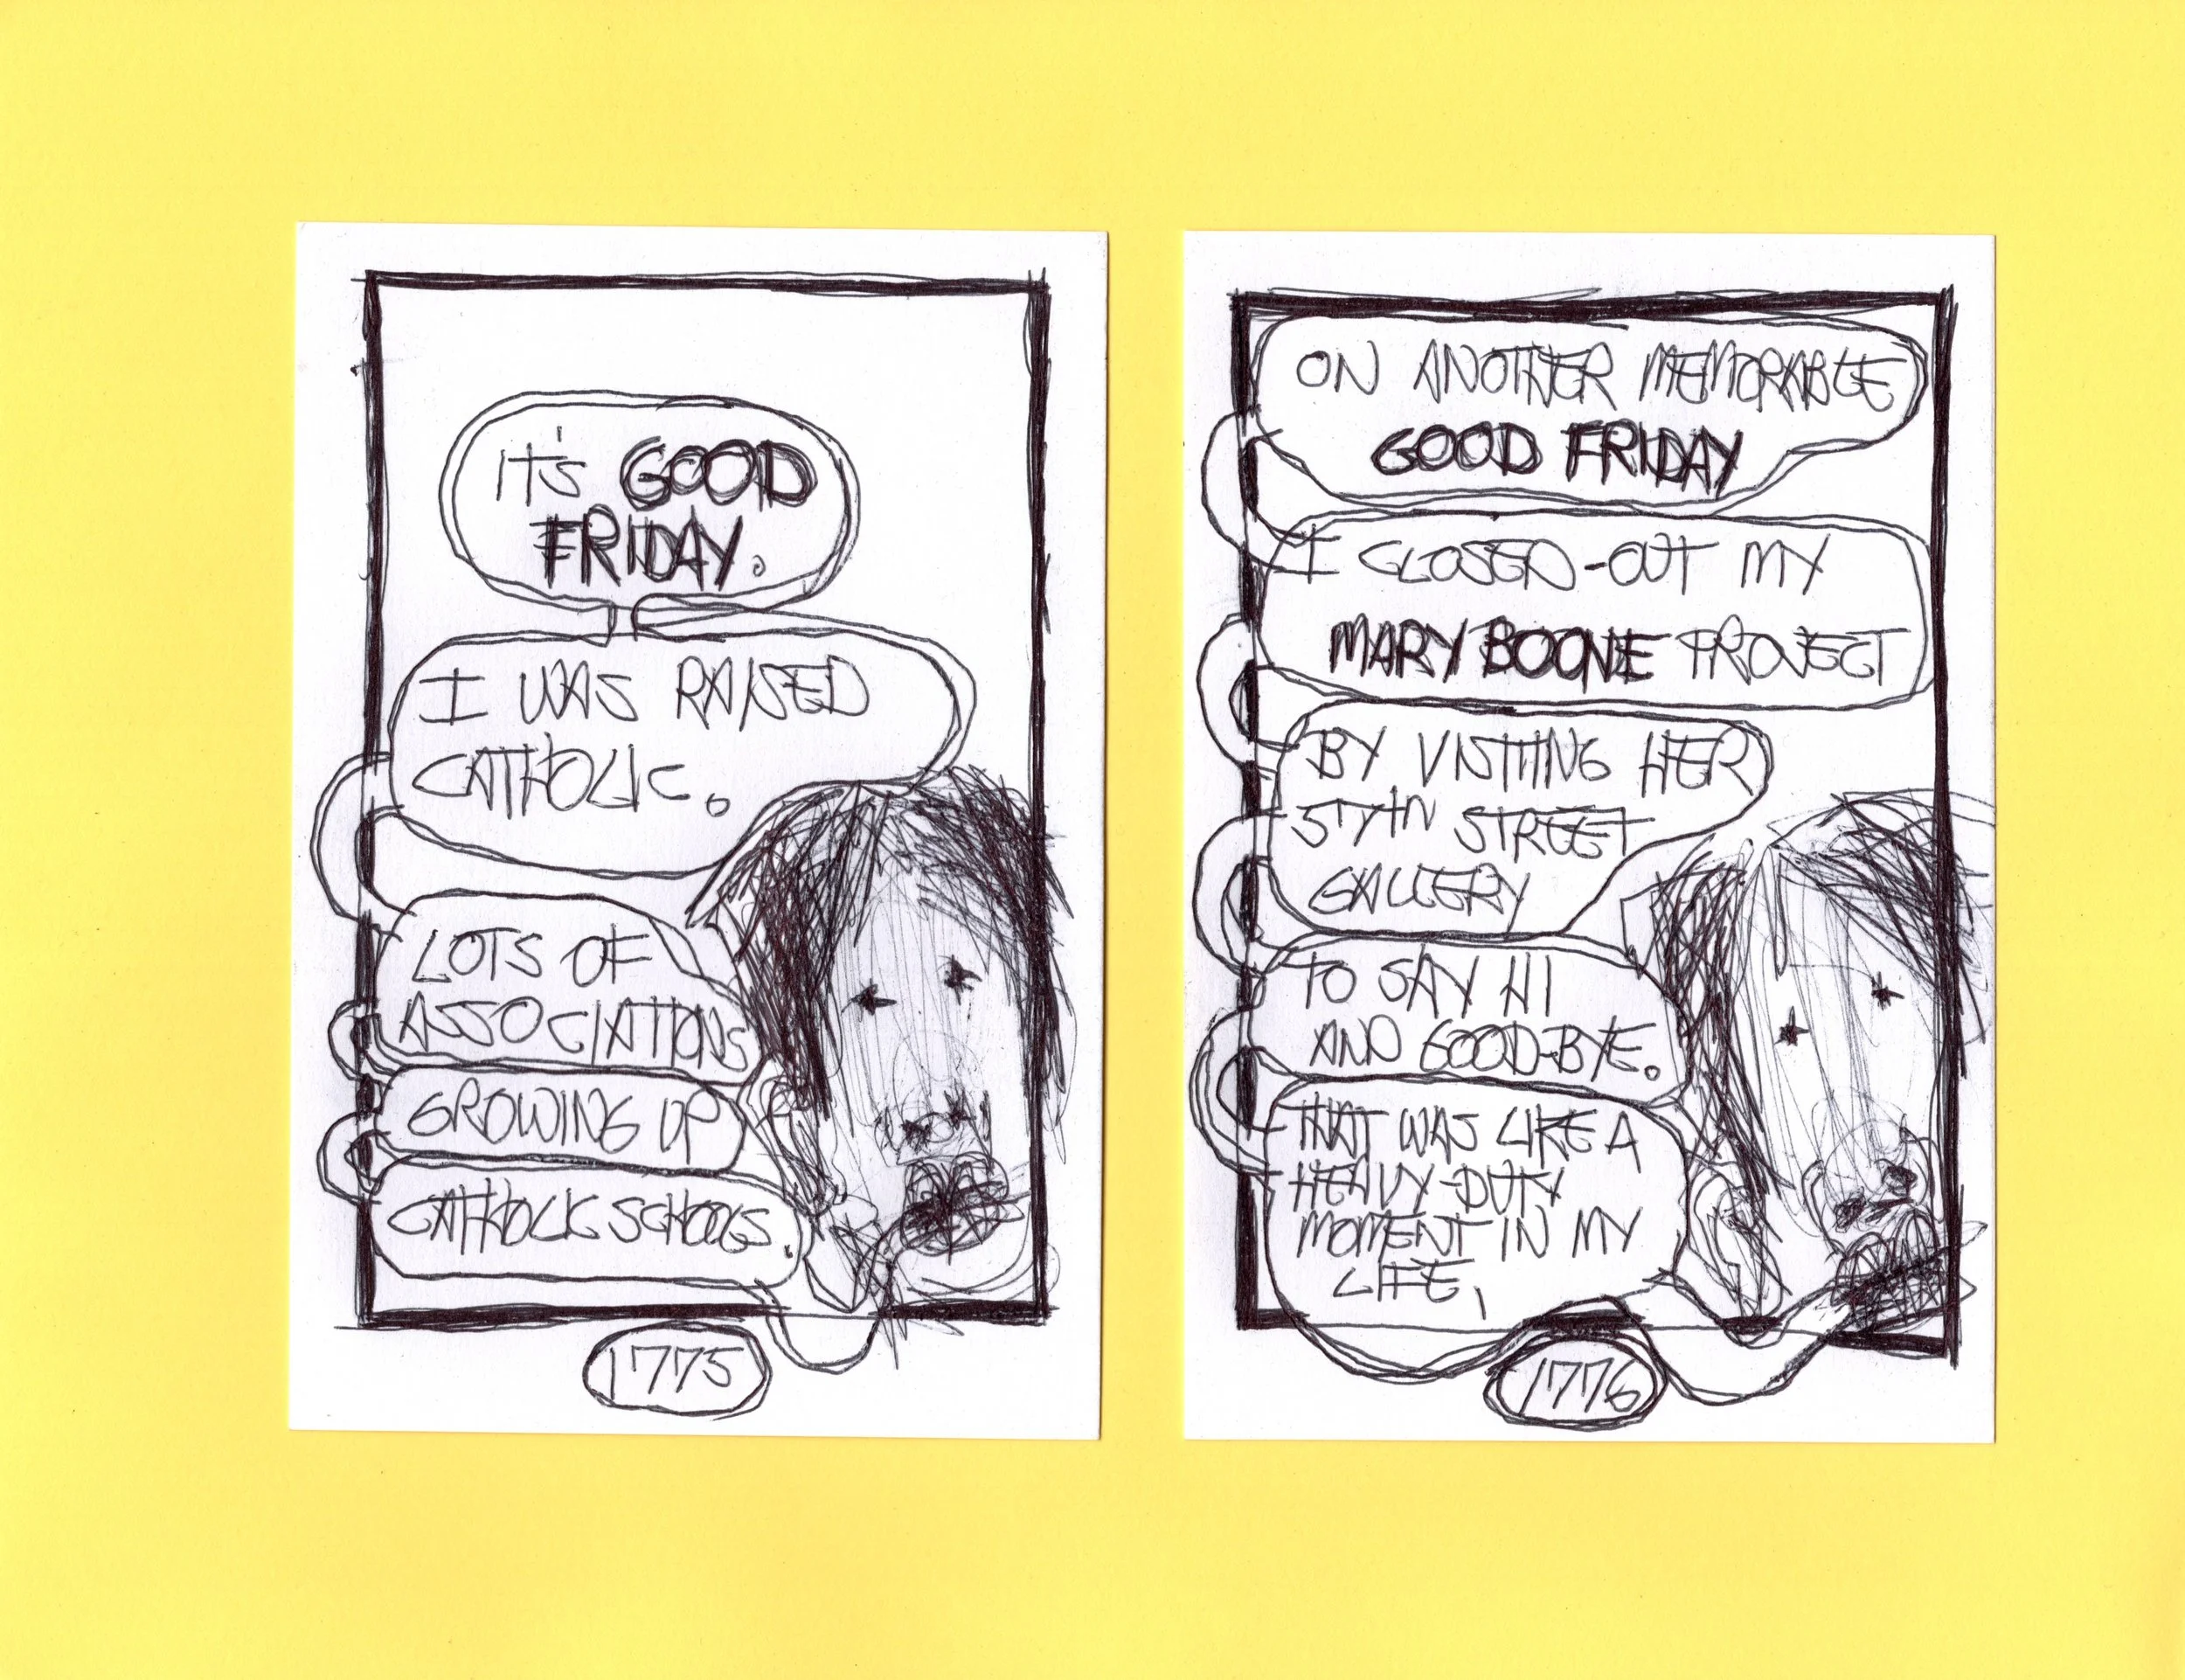 IT'S GOOD
FRIDAY.
I WAS RAISED
CATHOLIC.
LOTS OF
ASSOCIATIONS
GROWING UP
CATHOLIC SCHOOLS.
1775
ON ANOTHER MEMORABLE
GOOD FRIDAY
I CLOSED-OUT MY
MARY BOONE PROJECT
BY VISITING HER
57TH STREET
GALLERY
TO SAY HI
AND GOOD-BYE.
THAT WAS LIKE A
HEAVY-DUTY
MOMENT IN MY
LIFE,
1776